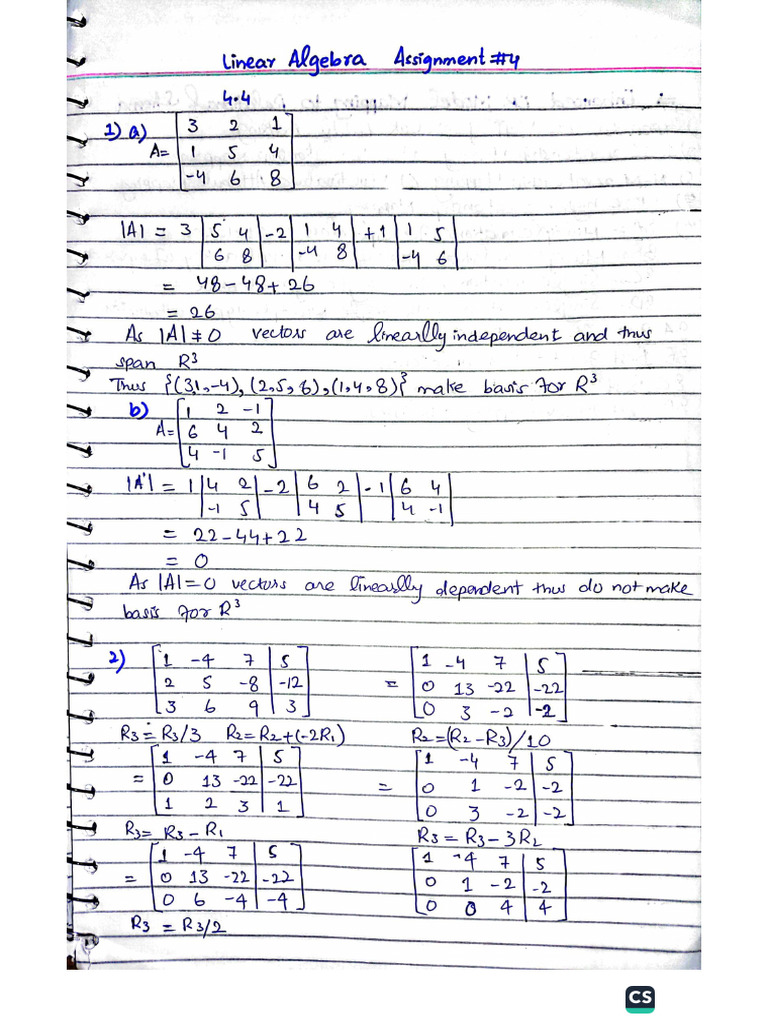 Linear Algebra Assignment #4
4.4
1) a)
A= [3 2 1
1 5 4
-4 6 8]
|A| = 3 |5 4 -2 |1 4 +1 |1 5|
6 8| -4 8| -4 6|
= 48-48+26
= 26
As |A|≠0 vectors are linearlly independent and thus
span R³
Thus {(3,1,-4), (2,5,6),(1,4,8)} make basis for R³
b) [1 2 -1
A= 6 4 2
4 -1 5]
|A| = 1 |4 2| -2 |6 2| -1 |6 4|
-1 5| 4 5| 4 -1|
= 22-44+22
= 0
As |A|=0 vectors are linearlly dependent thus do not make
basis for R³
2) [1 -4 7 | 5
2 5 -8 | -12
3 6 9 | 3]
R3 = R3/3 R2=R2+(-2R1)
= [1 -4 7 | 5
0 13 -22 | -22
1 2 3 | 1]
R3= R3-R1
= [1 -4 7 | 5
0 13 -22 | -22
0 6 -4 | -4]
R3 = R3/2
= [1 -4 7 | 5
0 13 -22 | -22
0 3 -2 | -2]
R2=(R2-R3)/10
= [1 -4 7 | 5
0 1 -2 | -2
0 3 -2 | -2]
R3 = R3-3R2
[1 -4 7 | 5
0 1 -2 | -2
0 0 4 | 4]
CS